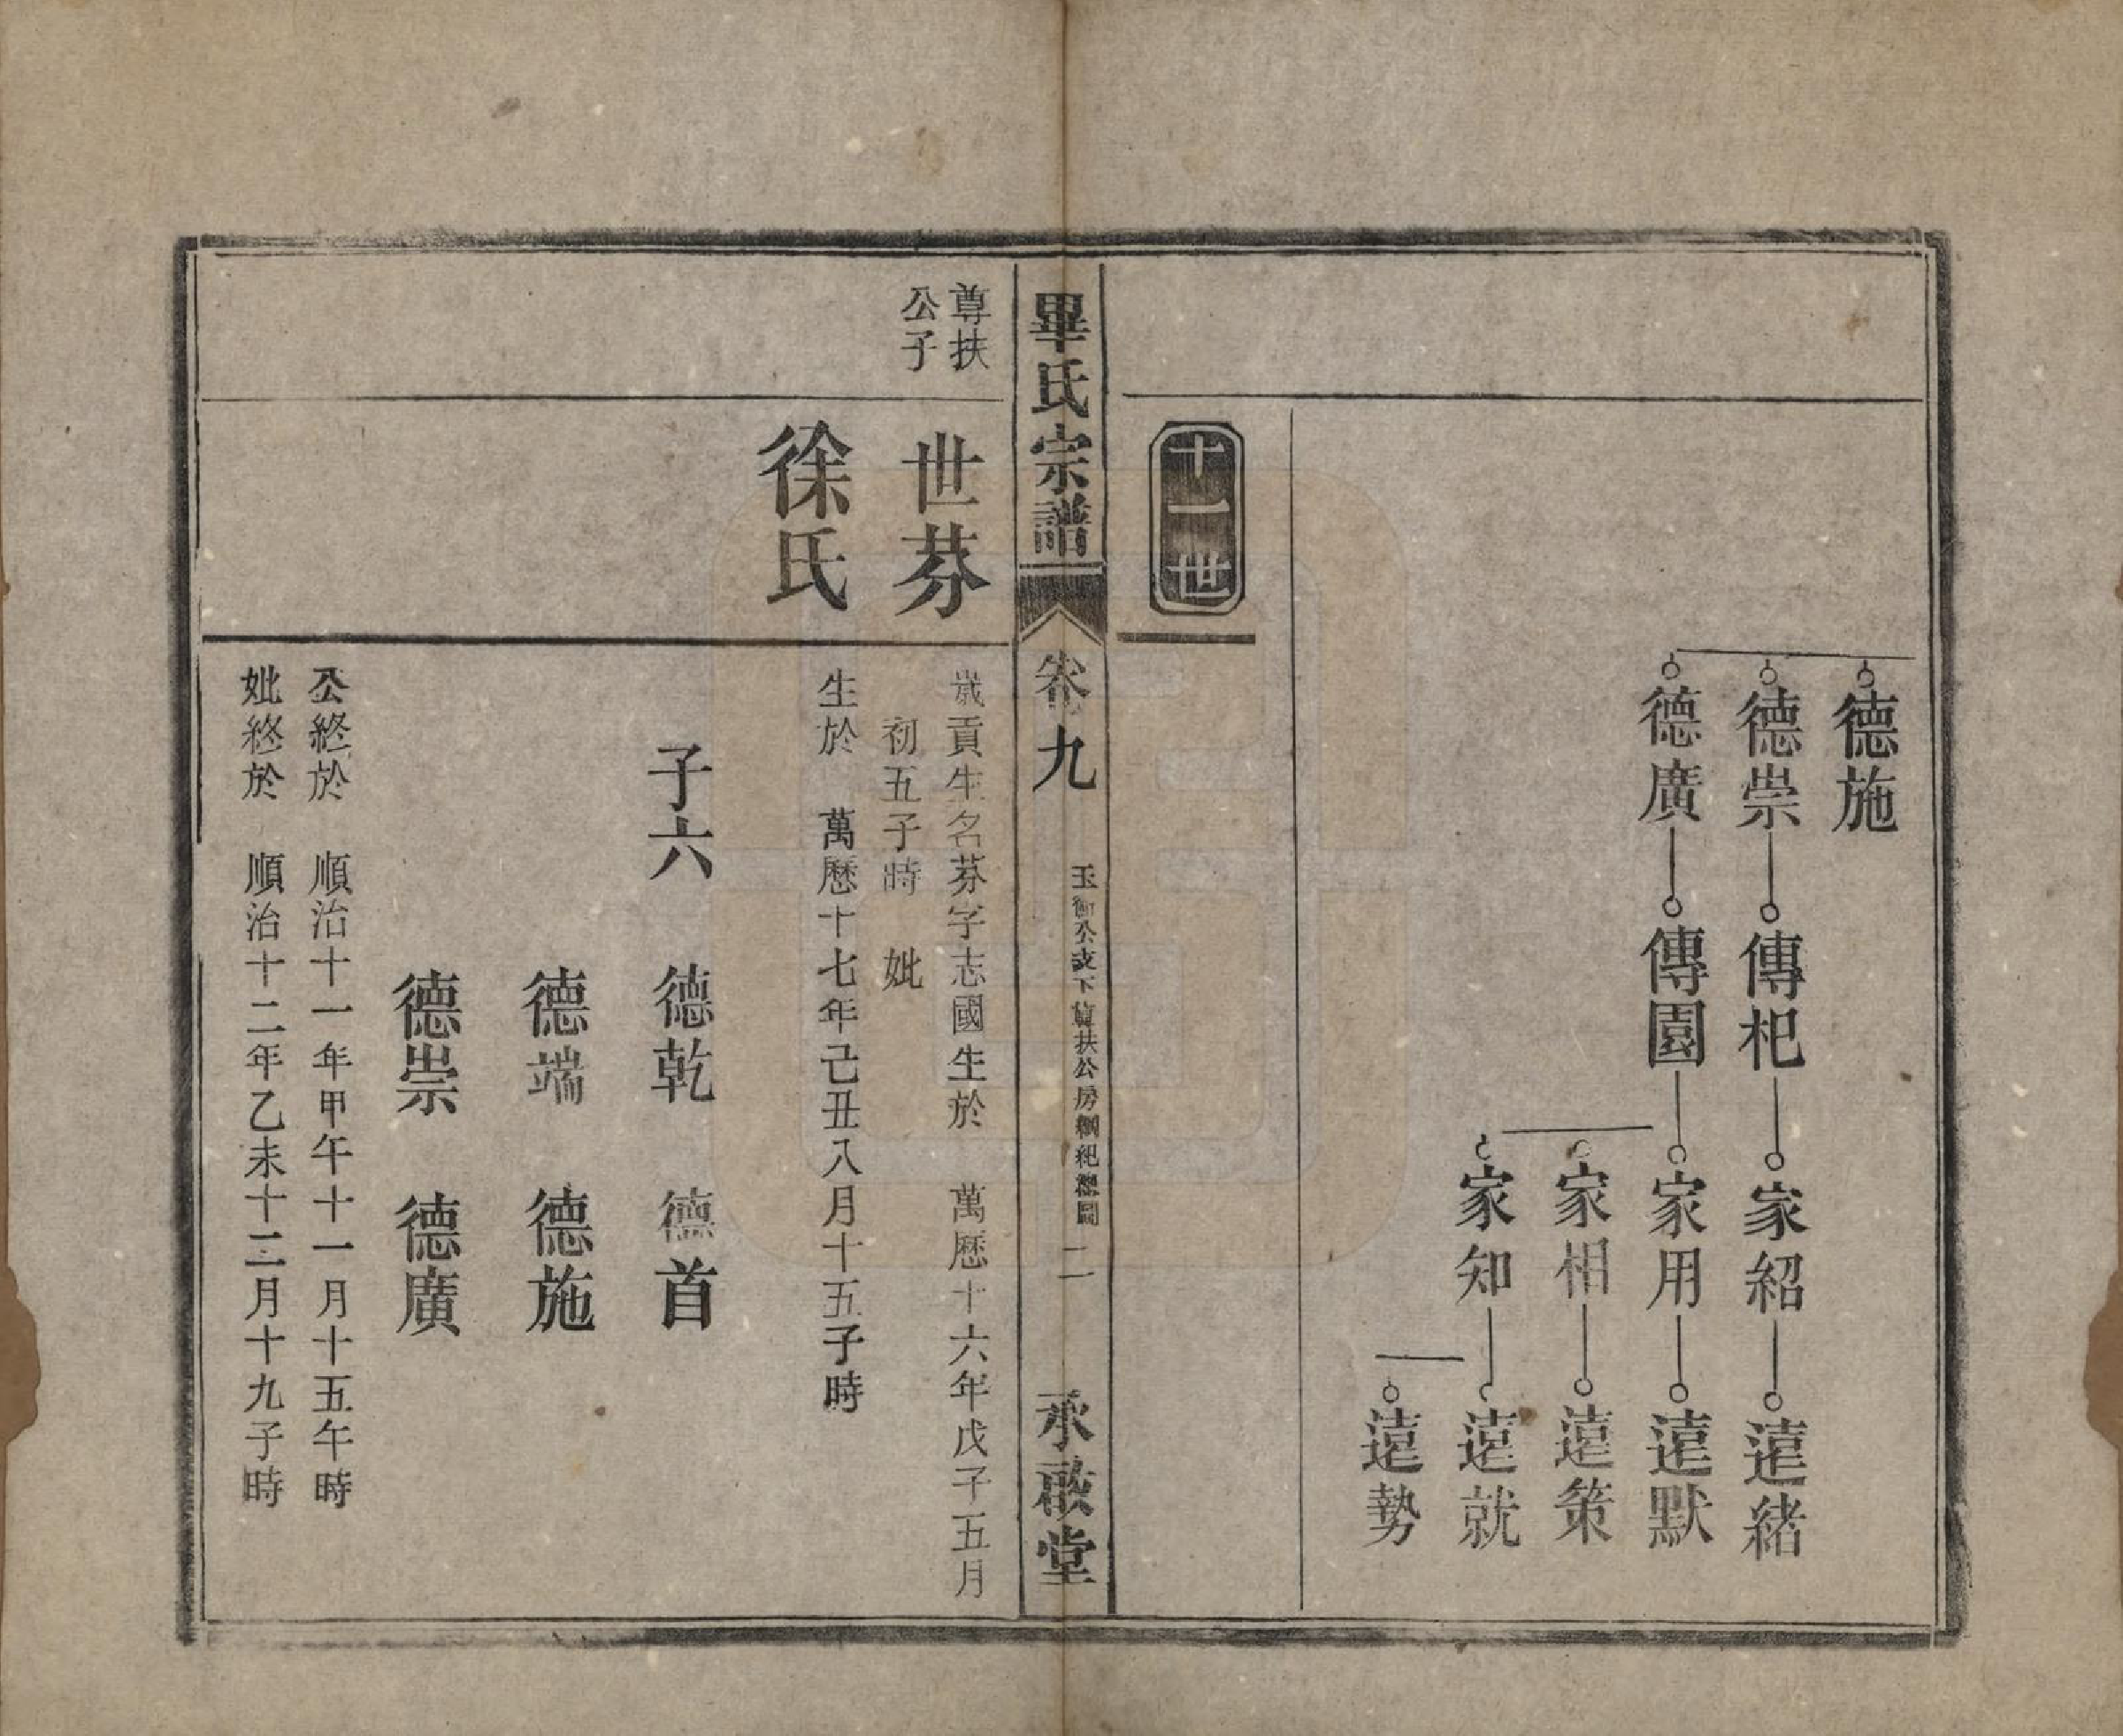 德施
德崇
傳杞
家紹
遠緒
德廣
傳園
家用
遠默
家相
遠策
家知
遠就
遠勢
十一世
畢氏宗譜
卷九
玉衡公支下尊扶公房綱紀總圖
二
承啟堂
尊扶
公子
世芬
歲貢生名芬字志國生於 萬曆十六年戊子五月
初五子時 妣
徐氏
生於 萬曆十七年己丑八月十五子時
子六 德乾 德首
德端 德施
德崇 德廣
公終於 順治十一年甲午十一月十五午時
妣終於 順治十二年乙未十二月十九子時